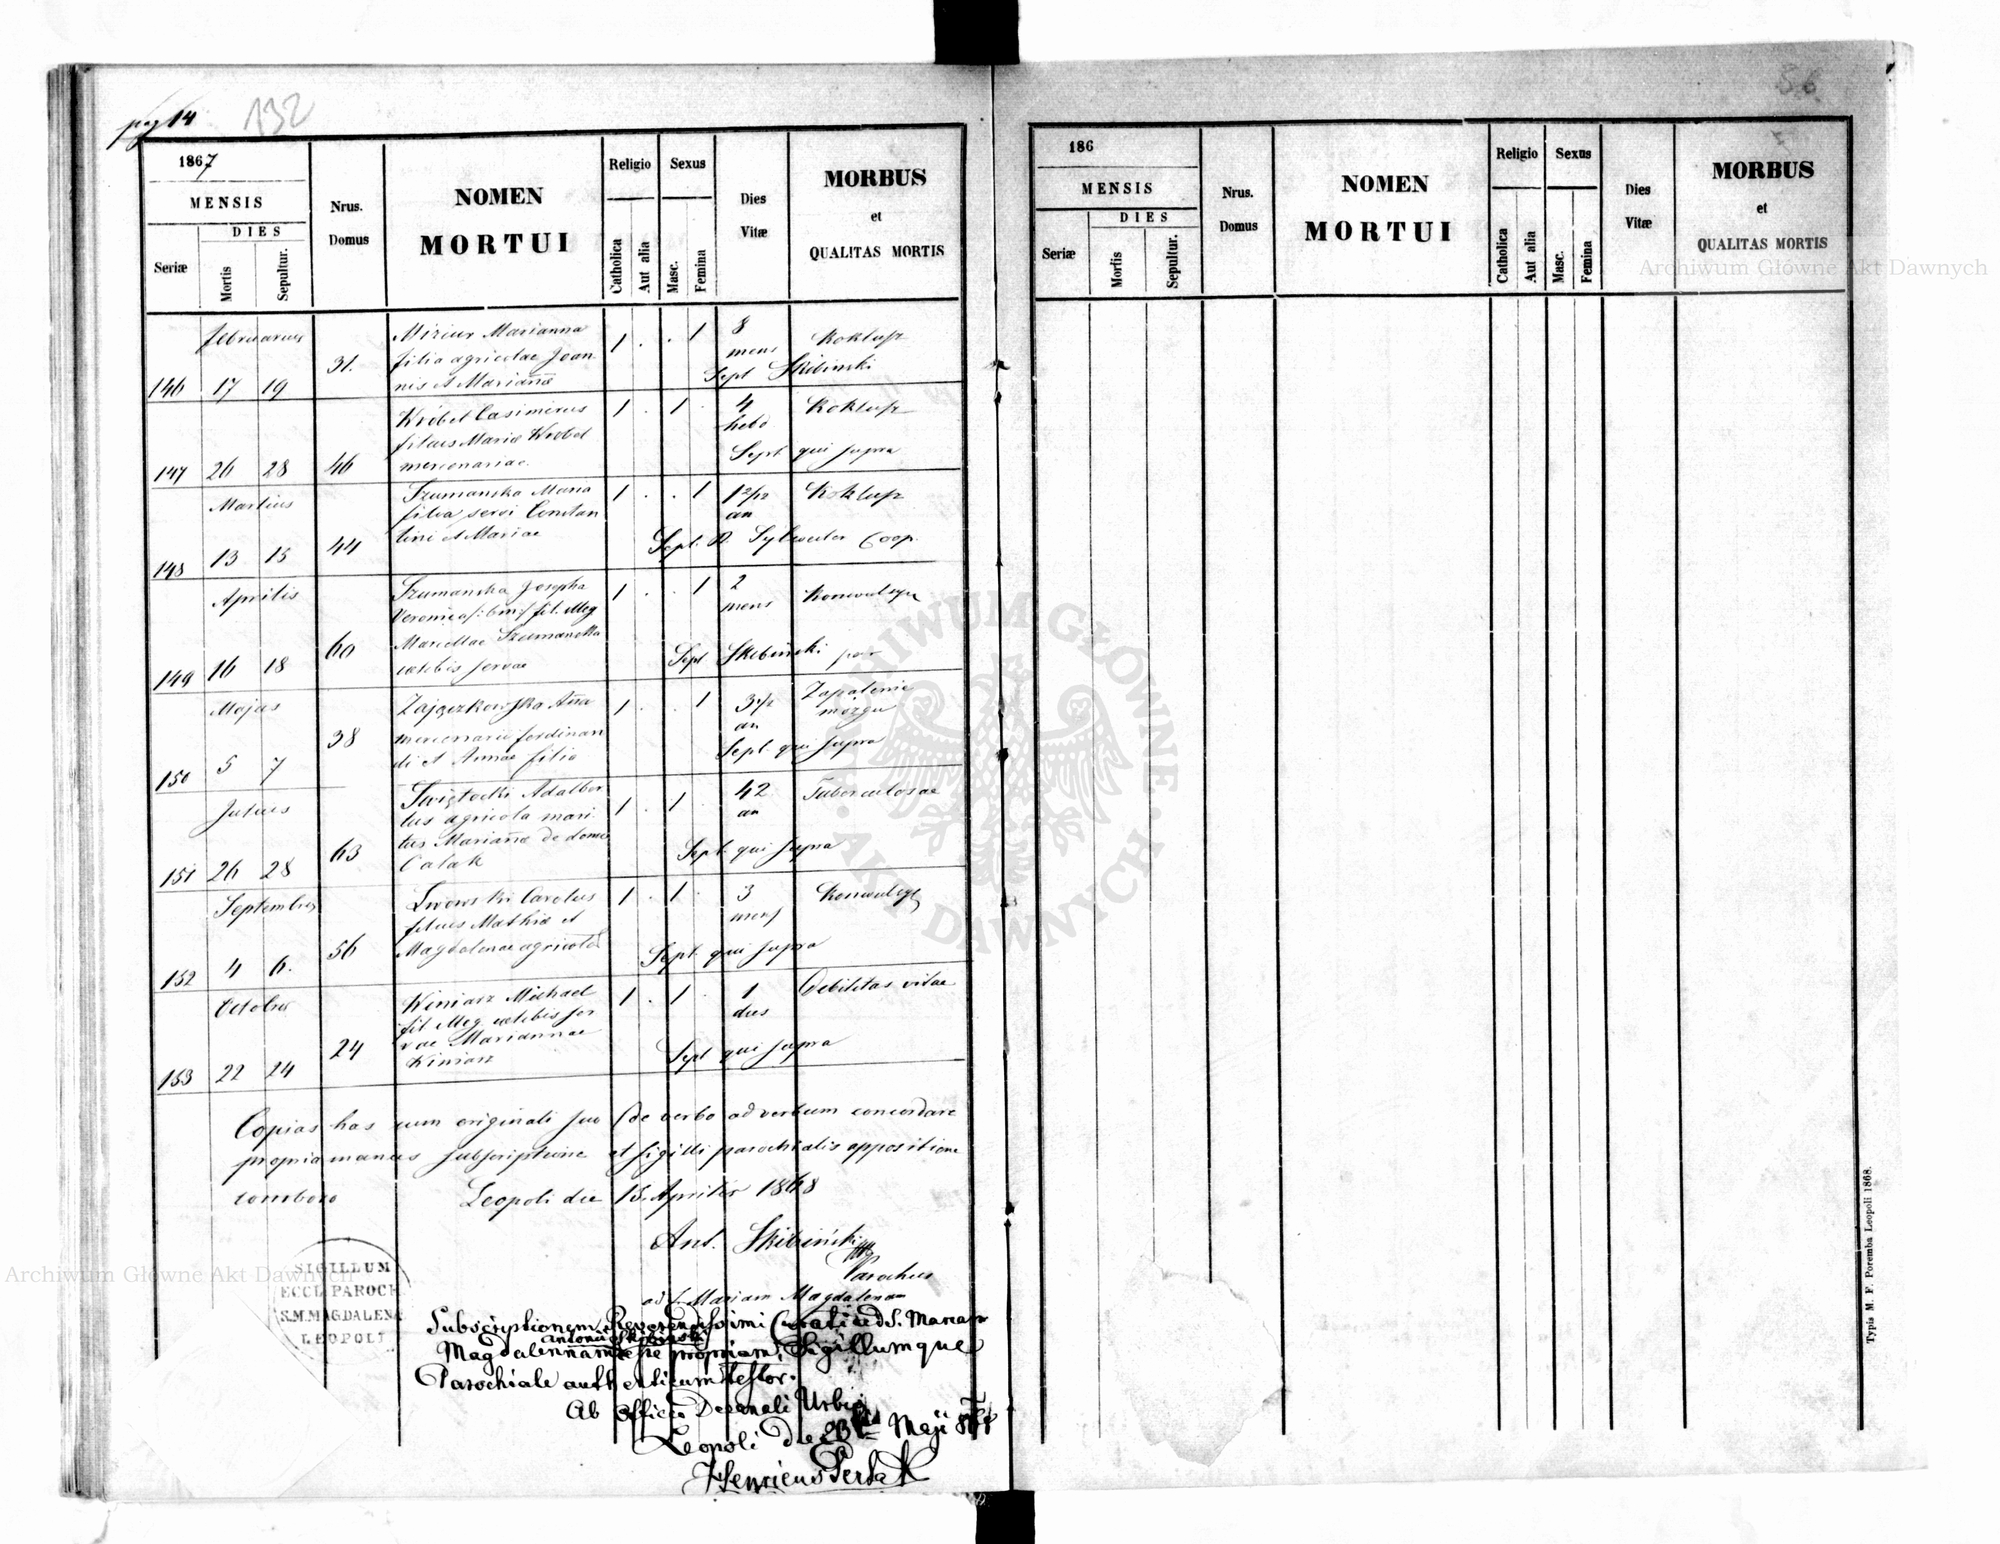 pag 14
132
1867
MENSIS
DIES
Seriæ
Mortis
Sepultur.
Nrus.
Domus
NOMEN
MORTUI
Religio
Catholica
Aut alia
Sexus
Masc.
Femina
Dies
Vitæ
MORBUS
et
QUALITAS MORTIS
februarius
146 17 19 31.
Marianna
filia agricolae Joan
nis et Mariañæ
1 . . 1
8
mens
Koklusz
Sept Skibinski
147 26 28 46
Krobel Casimirus
filius Mariæ Krobel
mercenariae.
1 . 1 .
4
hebd
Koklusz
Sept qui supra
Martius
148 13 15 44
Szumanska Maria
filia servi Constan
tini et Mariae
1 . . 1
1 2/12
an
Koklusz
Sept. R Sylwester Coop.
Aprilis
149 16 18 60
Szumanska Josepha
Veronica /: bin:/ fil. Illeg
Mariellae Szumanska
cœlibis servae
1 . . 1
2
mens
Konwulsye
Sept Skibiński par
Majus
150 5 7 38
Zajączkowska Aña
mercenarii ferdinan
di et Annae filia
1 . . 1
3 1/2
an
Zapalenie
mózgu
Sept qui supra
Julius
151 26 28 63
Swiętocki Adalber
tus agricola mari
tus Mariañæ de domo
Calak
1 . 1 .
42
an
Tuberculosae
Sept. qui supra
September
152 4 6. 56
Lwowski Carolus
filius Mathiæ et
Magdalenae agricolæ
1 . 1 .
3
mens
Konwulsye
Sept. qui supra
October
153 22 24 24
Winiarz Michael
fil Illeg cœlibis ser
vae Mariannae
Winiarz
1 . 1 .
1
dies
Debilitas vitae
Sept qui supra
Copias has cum originali suo de verbo ad verbum concordare
propria manus subscriptione et sigilli parochialis appositione
comboro Leopoli die 15. Aprilis 1868
Ant. Skibiński
Parochus
ad S. Mariam Magdalenam
SIGILLUM
ECCL. PAROCH
S.M. MAGDALENA
LEOPOLI
Subscriptionem Reverendissimi Curati ad S. Mariam
Antonii Skibinski
Magdalennam esse propriam, Sigillumque
Parochiale authenticum testor.
Ab Officio Decanali Urbis
Leopoli die 23 Maji 868
Henricus
86
186
MENSIS
DIES
Seriæ
Mortis
Sepultur.
Nrus.
Domus
NOMEN
MORTUI
Religio
Catholica
Aut alia
Sexus
Masc.
Femina
Dies
Vitæ
MORBUS
et
QUALITAS MORTIS
Typis M. F. Poremba Leopoli 1868.
Archiwum Główne Akt Dawnych
Archiwum Główne Akt Dawnych
ARCHIWUM GŁÓWNE · AKT DAWNYCH ·